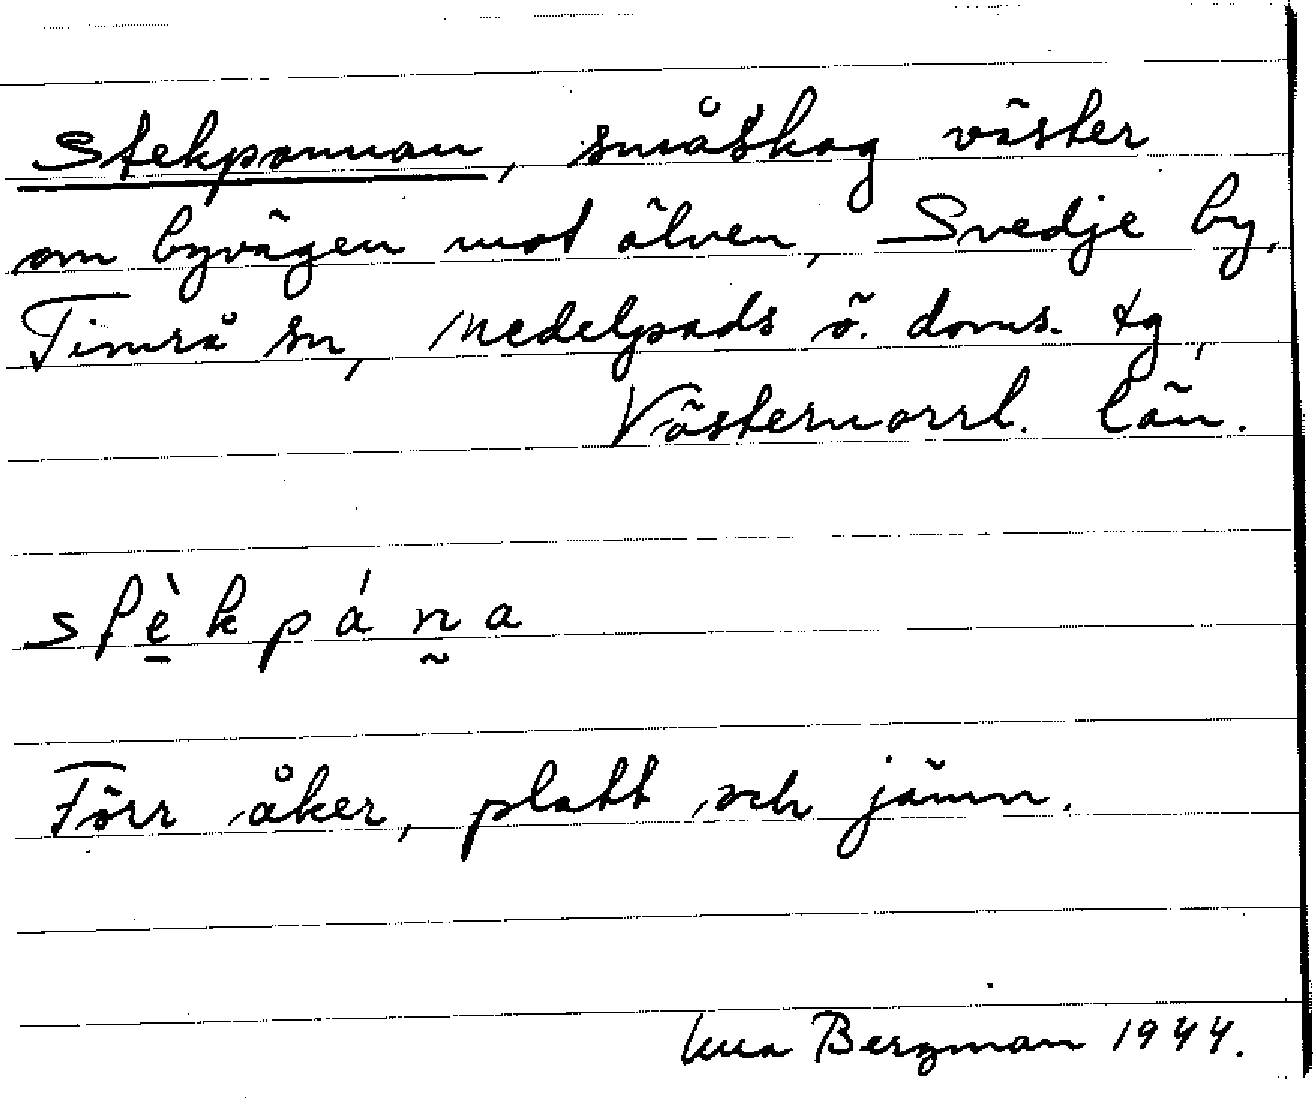 Stekpannan, småskog väster
om byvägen mot älven, Svedje by,
Timrå sn, Medelpads ö. doms. tg,
Västernorrl. län.
stèkpána
Förr åker, platt och jämn.
Bergman 1944.